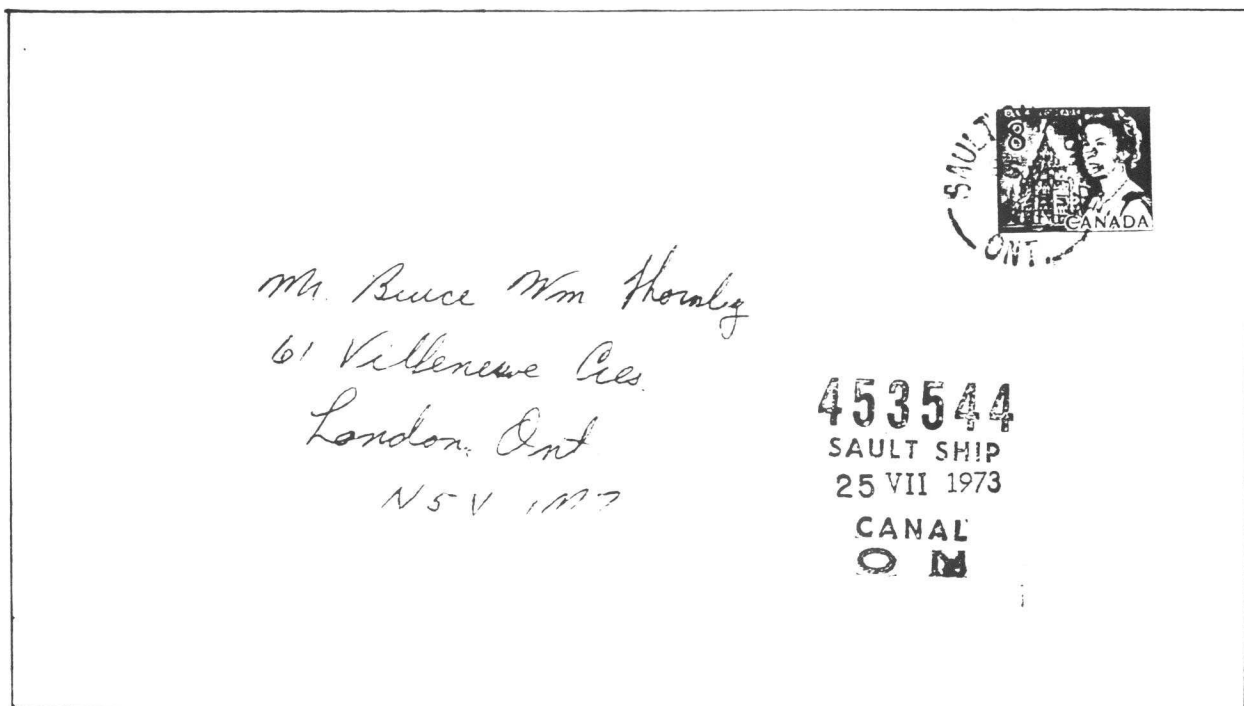 SAULT
8
CANADA
ONT.
Mr. Bruce Wm Thornby
61 Villeneuve Cres.
London, Ont
N5V
453544
SAULT SHIP
25 VII 1973
CANAL
O M